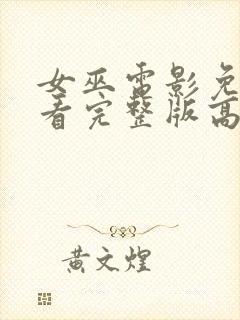 女巫电影免
看完整版高
黄文煌